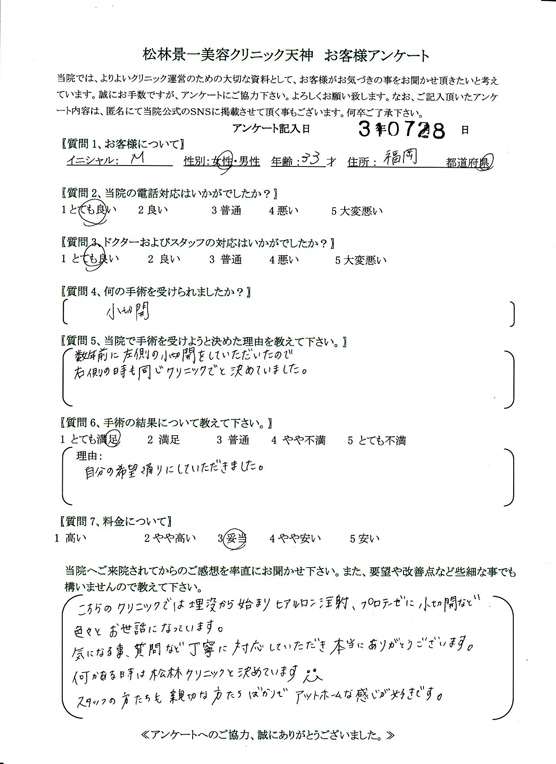 松林景一美容クリニック天神 お客様アンケート
当院では、よりよいクリニック運営のための大切な資料として、お客様がお気づきの事をお聞かせ頂きたいと考え
ています。誠にお手数ですが、アンケートにご協力下さい。よろしくお願い致します。なお、ご記入頂いたアンケ
ート内容は、匿名にて当院公式のSNSに掲載させて頂く事もございます。何卒ご了承下さい。
アンケート記入日 31年0728日
〖質問1、お客様について〗
イニシャル: M 性別:女性・男性 年齢:33才 住所: 福岡 都道府県
〖質問2、当院の電話対応はいかがでしたか?〗
1とても良い 2良い 3普通 4悪い 5大変悪い
〖質問3、ドクターおよびスタッフの対応はいかがでしたか?〗
1とても良い 2良い 3普通 4悪い 5大変悪い
〖質問4、何の手術を受けられましたか?〗
小切開
〖質問5、当院で手術を受けようと決めた理由を教えて下さい。〗
数年前に左側の小切開をしていただいたので
右側の時も同じクリニックでと決めていました。
〖質問6、手術の結果について教えて下さい。〗
1とても満足 2満足 3普通 4やや不満 5とても不満
理由:
自分の希望通りにしていただきました。
〖質問7、料金について〗
1高い 2やや高い 3妥当 4やや安い 5安い
当院へご来院されてからのご感想を率直にお聞かせ下さい。また、要望や改善点など些細な事でも
構いませんので教えて下さい。
こちらのクリニックでは埋没から始まりヒアルロン注射、プロテーゼに小切開など
色々とお世話になっています。
気になる事、質問など丁寧に対応していただき本当にありがとうございます。
何かある時は松林クリニックと決めています
スタッフの方たちも親切な方たちばかりでアットホームな感じが好きです。
≪アンケートへのご協力、誠にありがとうございました。≫